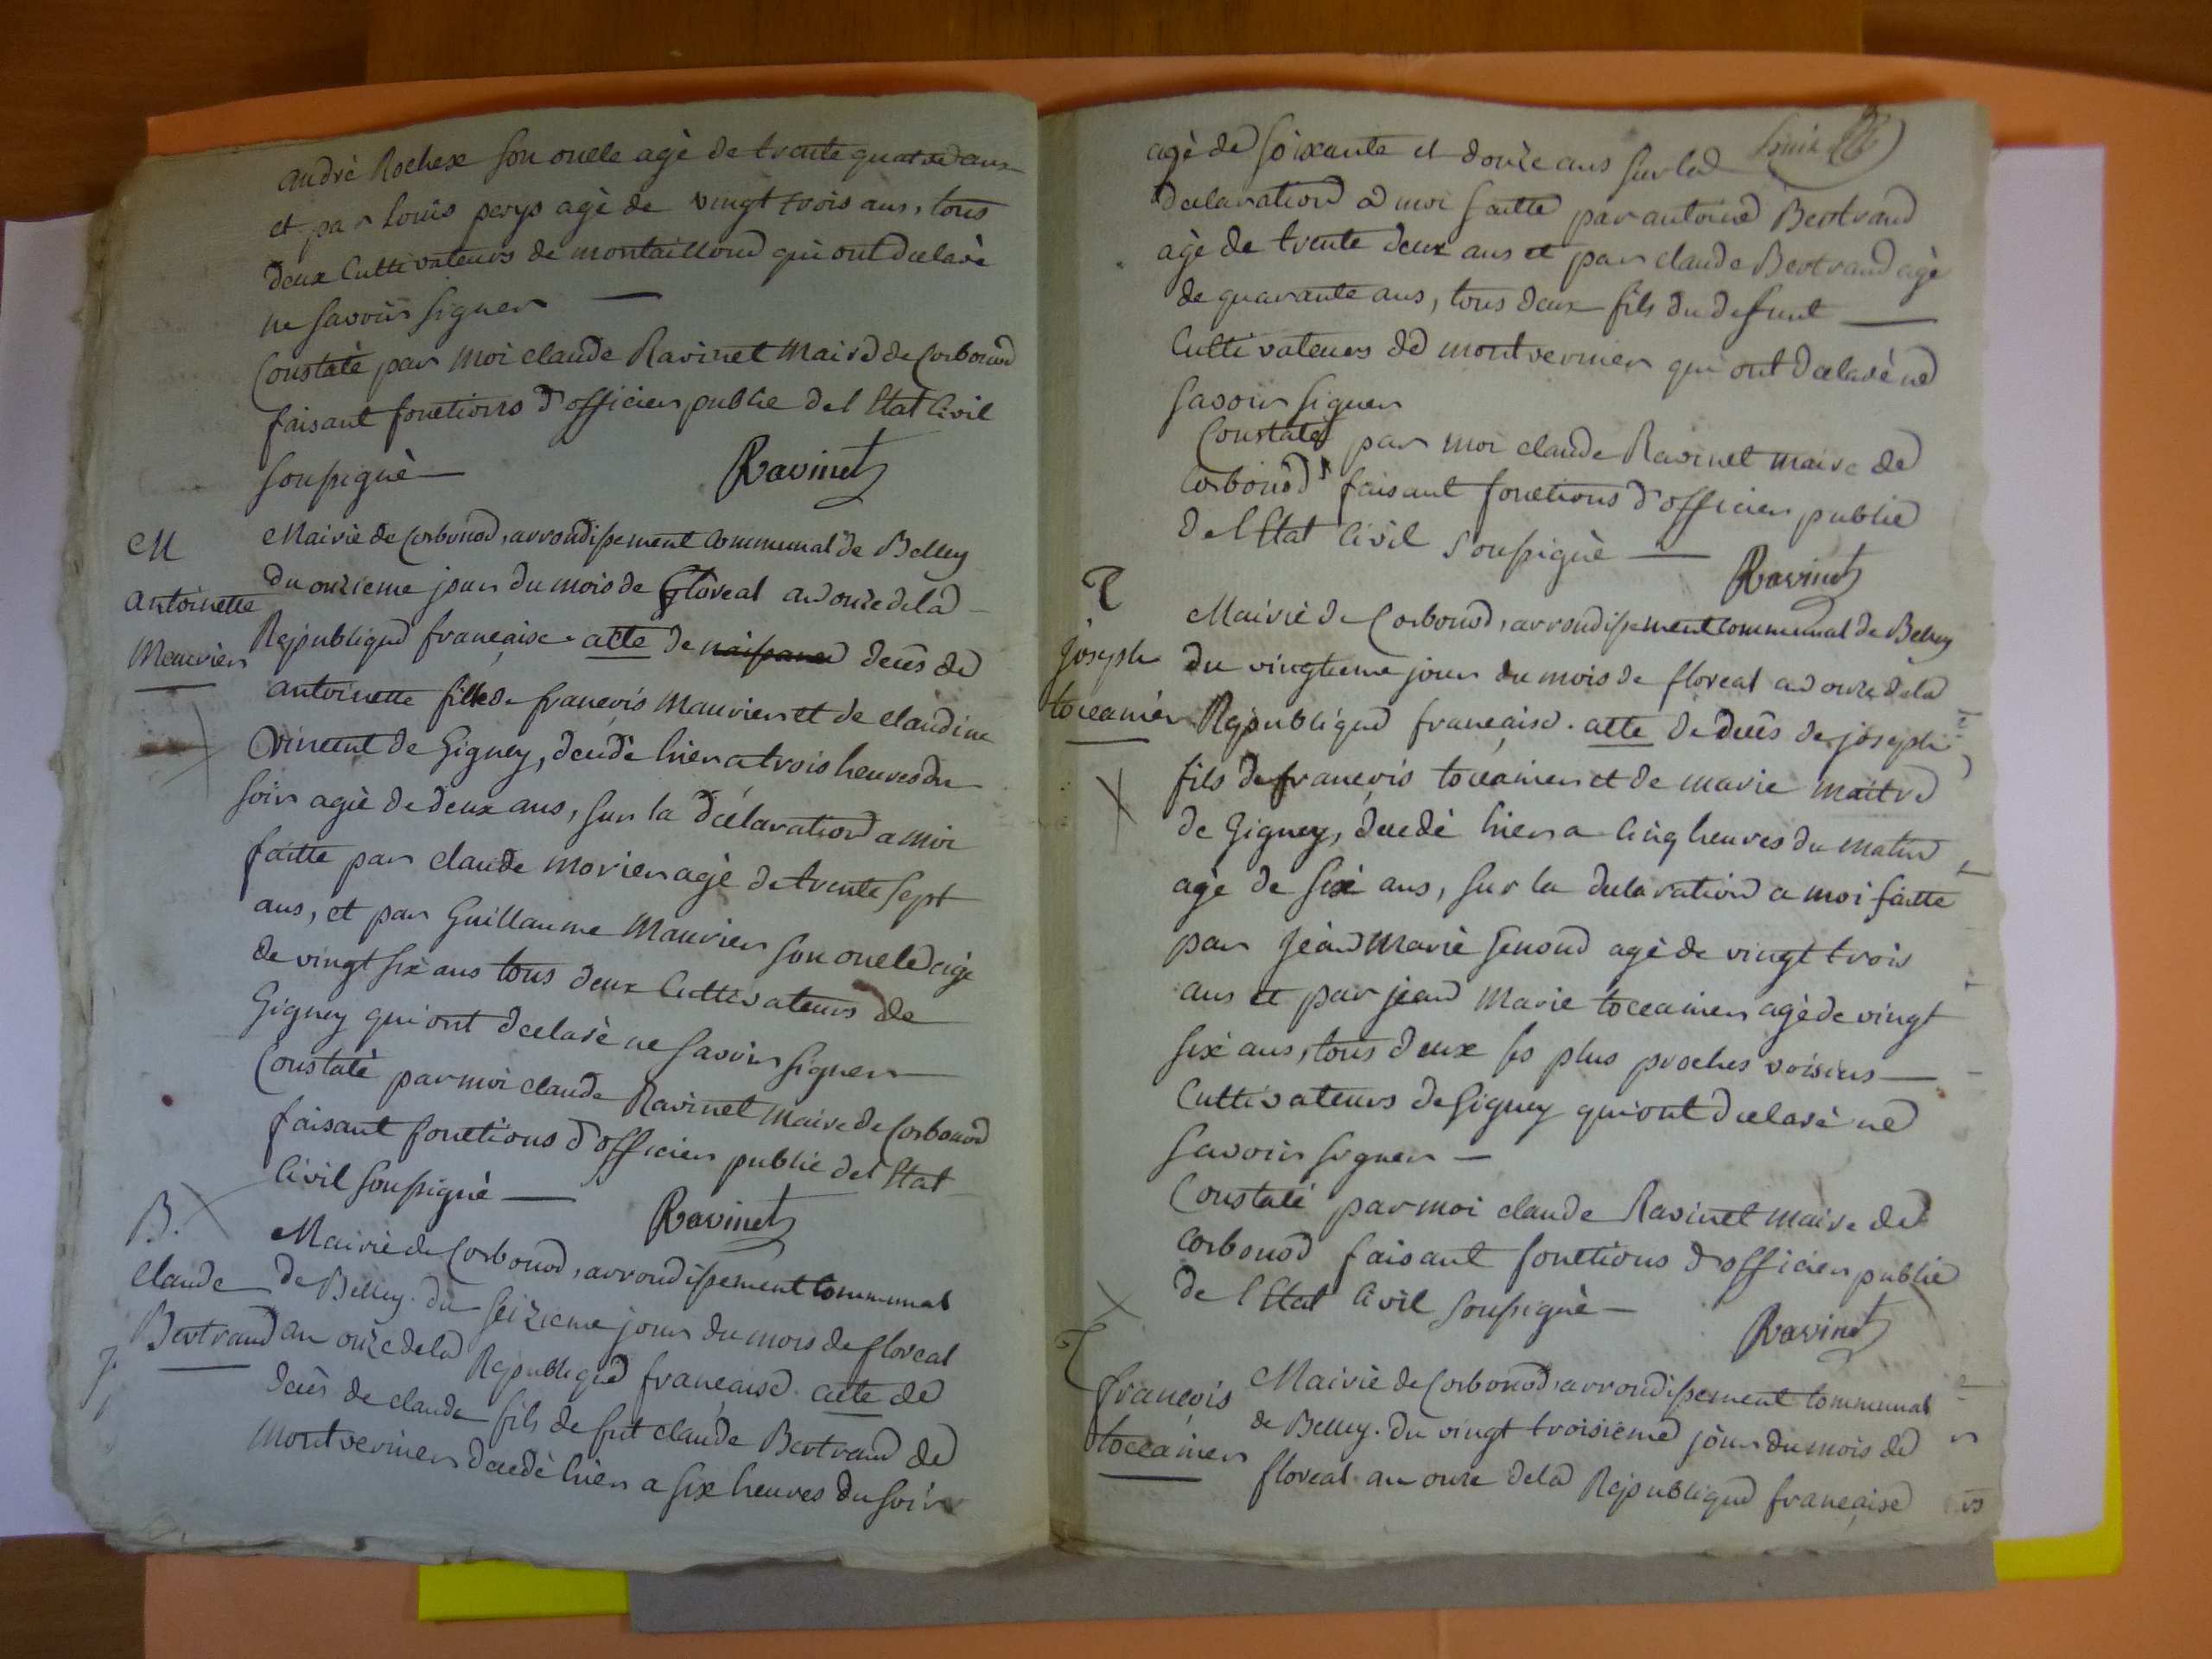 andrè Rochex son oncle agè de trente quatre ans
et par Louis perys agè de vingt trois ans, tous
deux Cultivateurs de montailloud qui ont declarè
ne savoir signer —
Constatè par moi claude Ravinet Maire de Corbonod
faisant fonctions d'officier public del Etat Civil
soussignè — Ravinet
M
antoinette
Mauvier
Mairie de Corbonod, arrondissement Communal de Belley
du onzieme jour du mois de floreal an onze de la
Republique française. acte de naissance decès de
antoinette fille de françois Mauvier et de claudine
vincent de Gigney, decedè hier a trois heures du
soir agèe de deux ans, sur la declaration a moi
faitte par claude morier agè de trente sept
ans, et par Guillaume Mauvier son oncle agè
de vingt six ans tous deux Cultivateurs de
Gigney qui ont declarè ne savoir signer —
Constatè par moi claude Ravinet Maire de Corbonod
faisant fonctions d'officier public del Etat
Civil soussignè — Ravinet
B.
Claude
Bertrand
Mairie de Corbonod, arrondissement Communal
de Belley. du seizieme jour du mois de floreal
an onze de la Republique française. acte de
decès de claude fils de fut claude Bertrand de
montvernier decedè hier a six heures du soir
agè de soixante et douze ans sur la
declaration a moi faitte par antoine Bertrand
agè de trente deux ans et par claude Bertrand agè
de quarante ans, tous deux fils du defunt —
Cultivateurs de montvernier qui ont declarè ne
savoir signer
Constatè par moi claude Ravinet maire de
Corbonod faisant fonctions d'officier public
de l Etat Civil soussignè — Ravinet
T
joseph
toccanier
Mairie de Corbonod, arrondissement communal de Belley
du vingtieme jour du mois de floreal an onze de la
Republique française. acte de decès de joseph
fils de françois toccanier et de marie maitre
de Gigney, decedè hier a cinq heures du matin
agè de six ans, sur la declaration a moi faitte
par Jean Marie Genoud agè de vingt trois
ans et par jean Marie toccanier agè de vingt
six ans, tous deux ses plus proches voisins —
Cultivateurs de Gigney qui ont declarè ne
savoir signer —
Constatè par moi claude Ravinet maire de
Corbonod faisant fonctions d'officier public
de l Etat Civil soussignè — Ravinet
T
françois
toccanier
Mairie de Corbonod, arrondissement Communal
de Belley. du vingt troisieme jour du mois de
floreal an onze de la Republique française